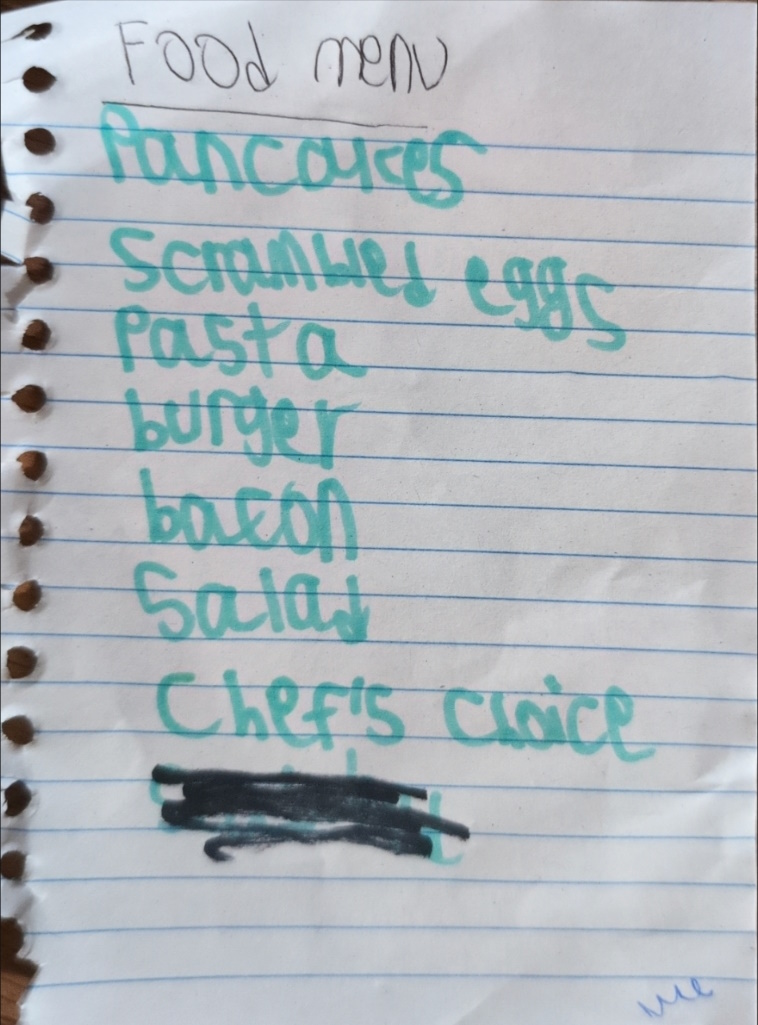 Food menu
Pancakes
Scrambled eggs
Pasta
burger
bacon
Salad
Chef's choice